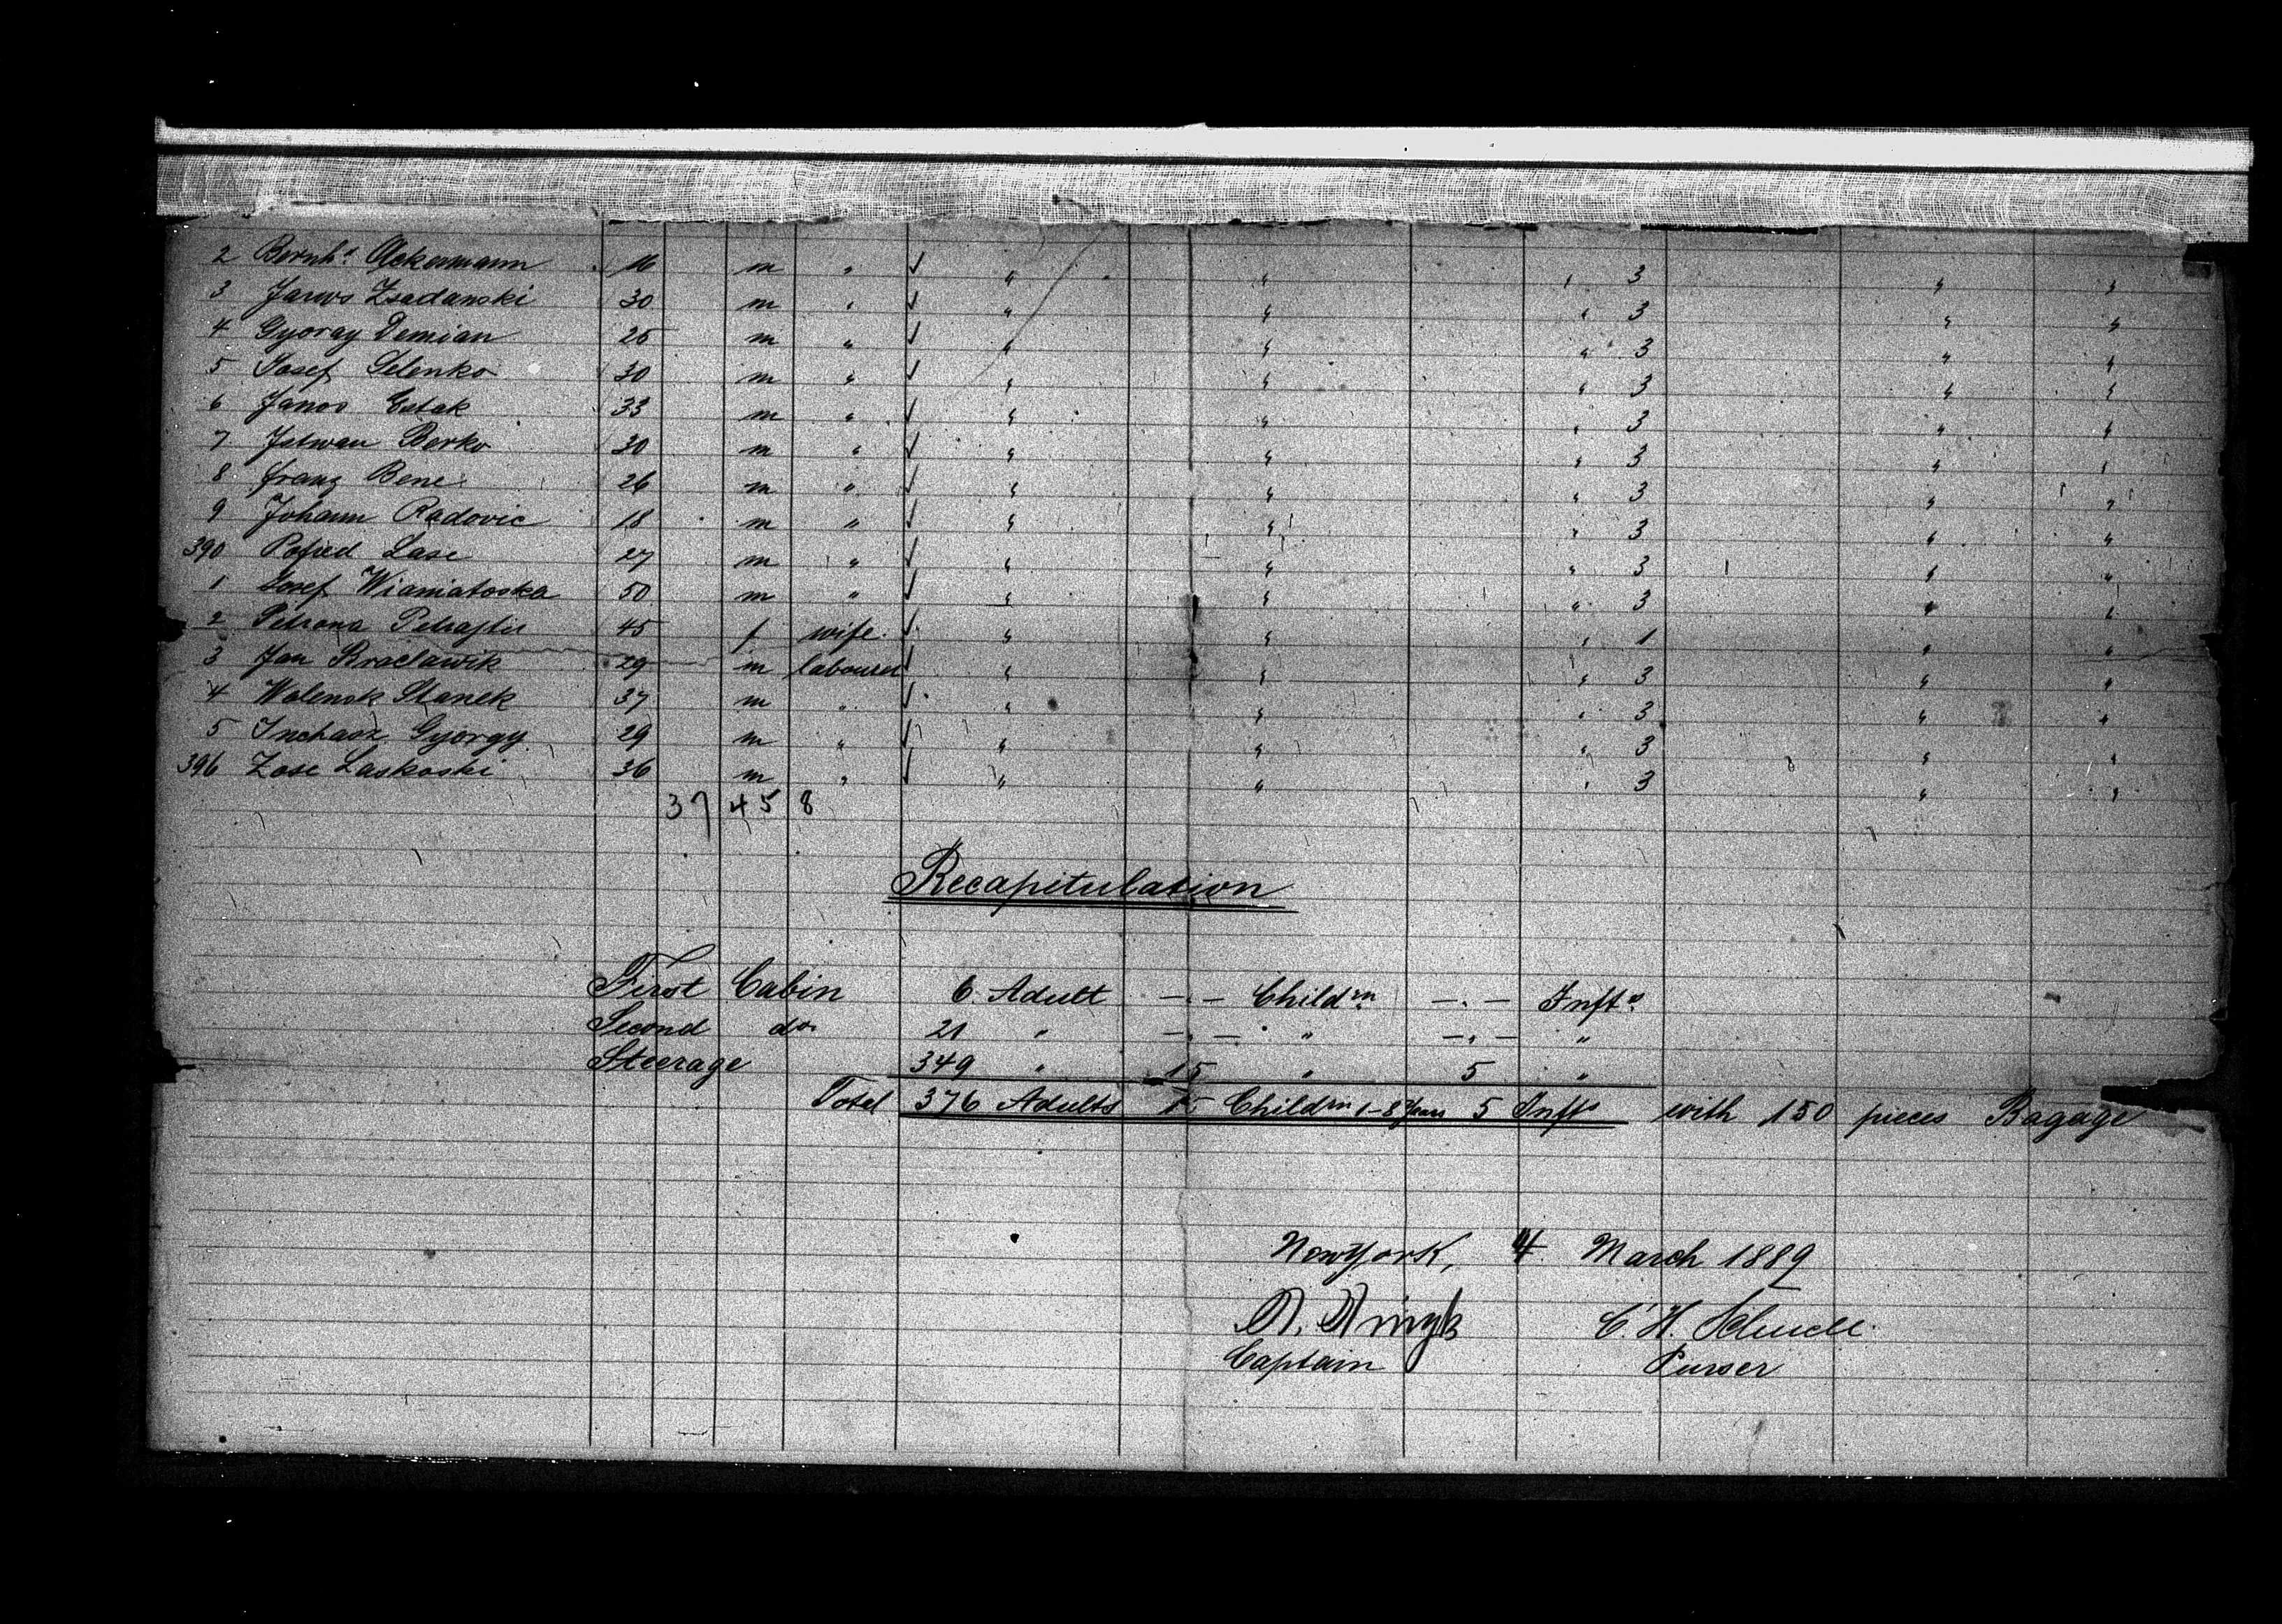 2 Bernhd Ackermann 16 m " ✓ " " " 3 " "
3 Janos Zsadanski 30 m " ✓ " " " 3 " "
4 Gyoray Demian 25 m " ✓ " " " 3 " "
5 Josef Selenko 30 m " ✓ " " " 3 " "
6 Janos Estak 33 m " ✓ " " " 3 " "
7 Istwan Berko 30 m " ✓ " " " 3 " "
8 Franz Bene 26 m " ✓ " " " 3 " "
9 Johann Radovic 18 m " ✓ " " " 3 " "
390 Lase 27 m " ✓ " " " 3 " "
1 Josef Wianiatoska 50 m " ✓ " " " 3 " "
2 Petrona 45 f wife ✓ " " " 1 " "
3 Jan Kraclawik 29 m labourer ✓ " " " 3 " "
4 Walensk Stanek 37 m " ✓ " " " 3 " "
5 Inchasz György 29 m " ✓ " " " 3 " "
396 Zose Laskoski 36 m " ✓ " " " 3 " "
37 45 8
Recapitulation
First Cabin 6 Adult -.- Childrn -.- Infts
Second do 21 " -.- " -.- "
Steerage 349 " 15 " 5 "
Total 376 Adults 15 Childrn 1-8 Years 5 Infts with 150 pieces Bagage
New York, 4 March 1889
C. H.
Captain Purser